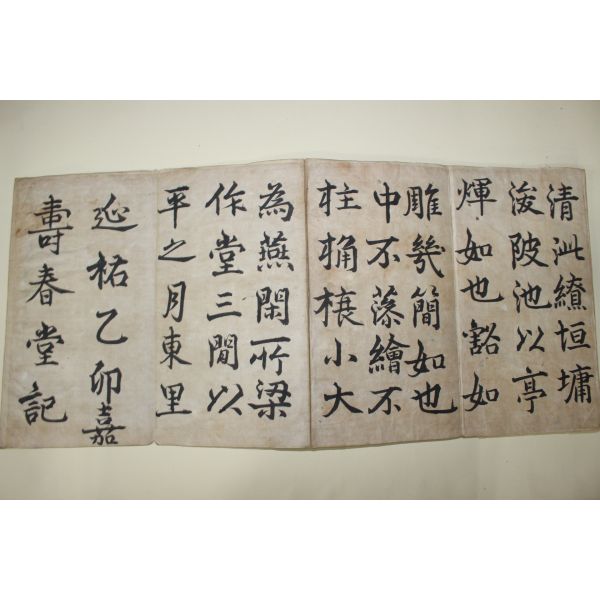 壽春堂記
延祐乙卯嘉
平之月東里
作堂三間以
為燕閑所梁
柱桷榱小大
中不藻繪不
雕幾簡如也
煇如也豁如
浚陂池以亭
清沘繚垣墉